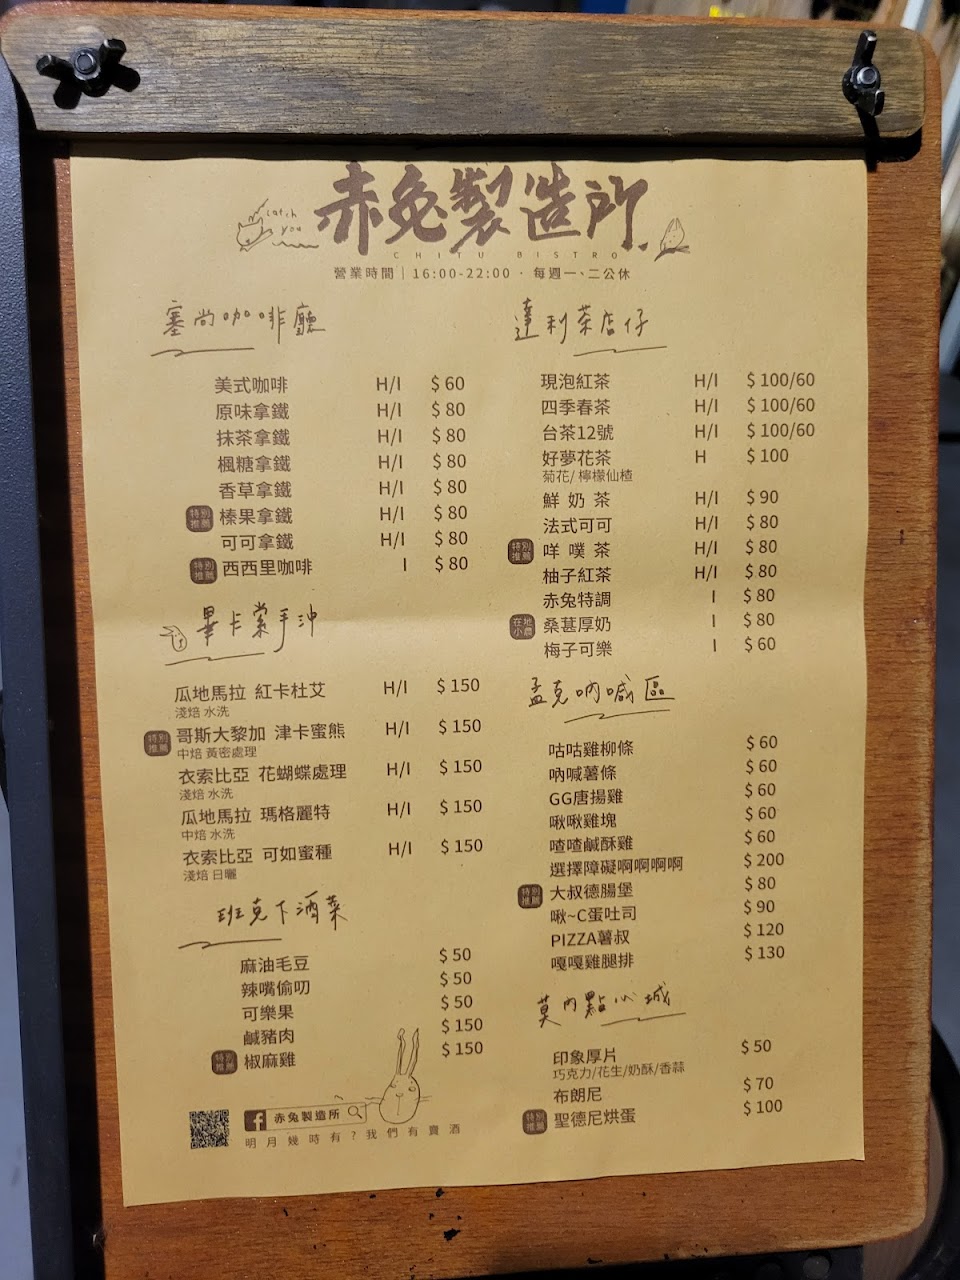 catch
you
赤兔製造所
CHITU BISTRO
營業時間｜16:00-22:00 · 每週一、二公休
塞尚咖啡廳
美式咖啡 H/I $60
原味拿鐵 H/I $80
抹茶拿鐵 H/I $80
楓糖拿鐵 H/I $80
香草拿鐵 H/I $80
特別推薦 榛果拿鐵 H/I $80
可可拿鐵 H/I $80
特別推薦 西西里咖啡 I $80
畢卡索手沖
瓜地馬拉 紅卡杜艾 H/I $150
淺焙 水洗
特別推薦 哥斯大黎加 津卡蜜熊 H/I $150
中焙 黃密處理
衣索比亞 花蝴蝶處理 H/I $150
淺焙 水洗
瓜地馬拉 瑪格麗特 H/I $150
中焙 水洗
衣索比亞 可如蜜種 H/I $150
淺焙 日曬
班克下酒菜
麻油毛豆 $50
辣嘴偷叨 $50
可樂果 $50
鹹豬肉 $150
特別推薦 椒麻雞 $150
赤兔製造所
明月幾時有?我們有賣酒
達利茶店仔
現泡紅茶 H/I $100/60
四季春茶 H/I $100/60
台茶12號 H/I $100/60
好夢花茶 H $100
菊花/檸檬仙楂
鮮奶茶 H/I $90
法式可可 H/I $80
特別推薦 咩噗茶 H/I $80
柚子紅茶 H/I $80
赤兔特調 I $80
在地小農 桑葚厚奶 I $80
梅子可樂 I $60
孟克吶喊區
咕咕雞柳條 $60
吶喊薯條 $60
GG唐揚雞 $60
啾啾雞塊 $60
喳喳鹹酥雞 $60
選擇障礙啊啊啊啊 $200
特別推薦 大叔德腸堡 $80
啾~C蛋吐司 $90
PIZZA薯叔 $120
嘎嘎雞腿排 $130
莫內點心城
印象厚片 $50
巧克力/花生/奶酥/香蒜
布朗尼 $70
特別推薦 聖德尼烘蛋 $100